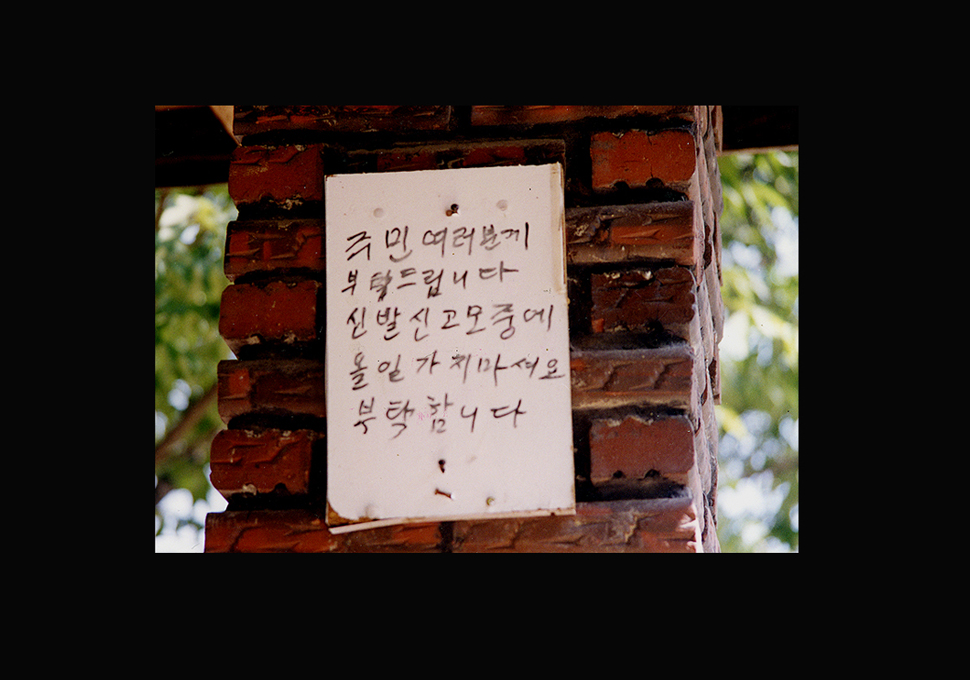 주민 여러분게
부탁드립니다
신발신고모중에
올일가지마셔요
부탁합니다